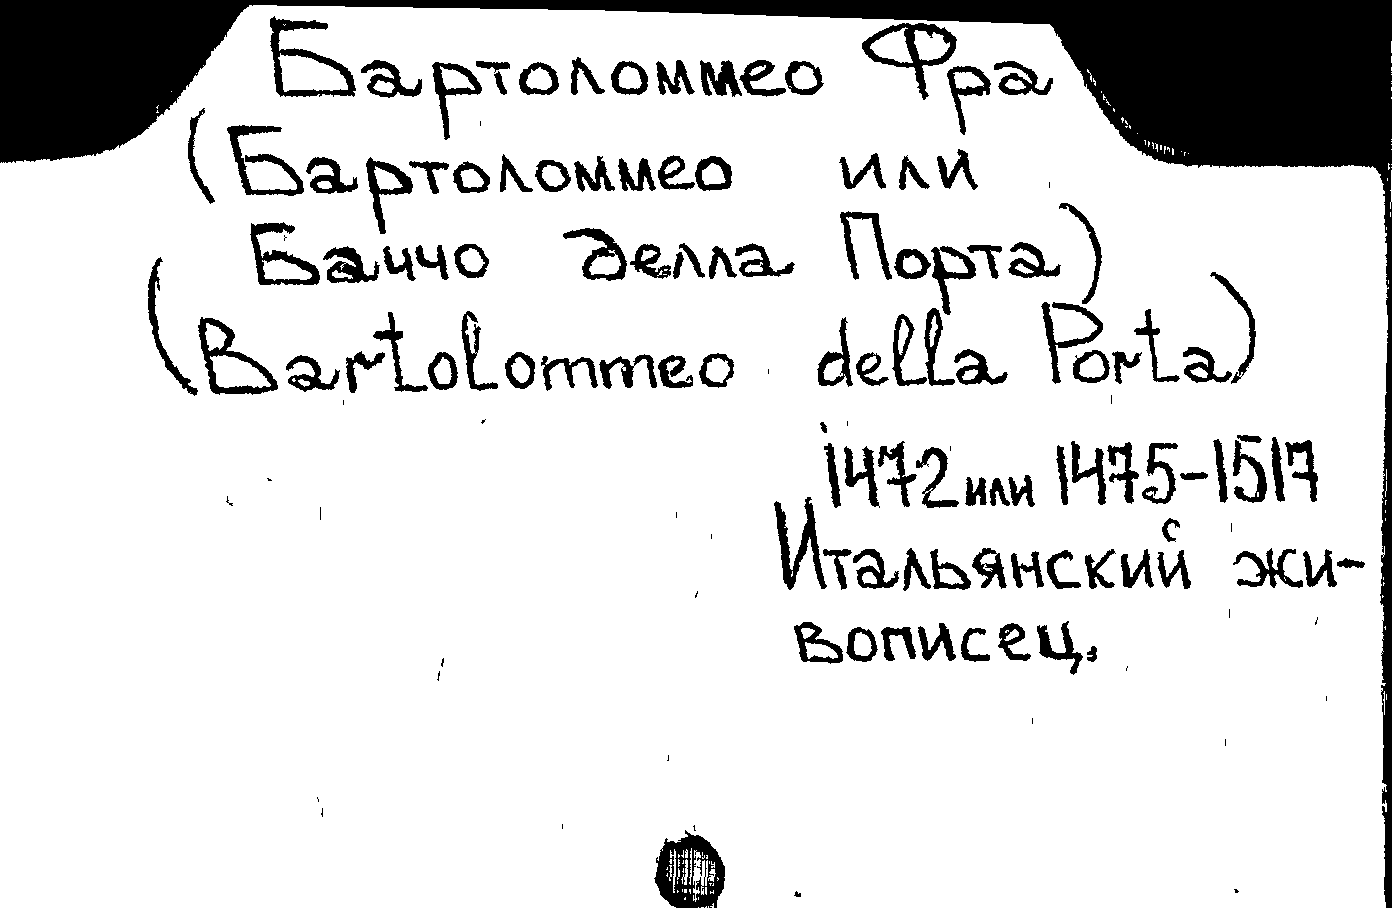 Бартоломмео Фра
(Бартоломмео или
Баччо делла Порта)
(Bartolommeo della Porta)
1472 или 1475-1517
Итальянский жи-
вописец.